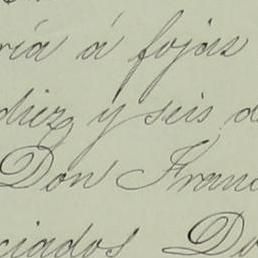 ría á fojas
diez y seis d
Don Franc
ciados Do